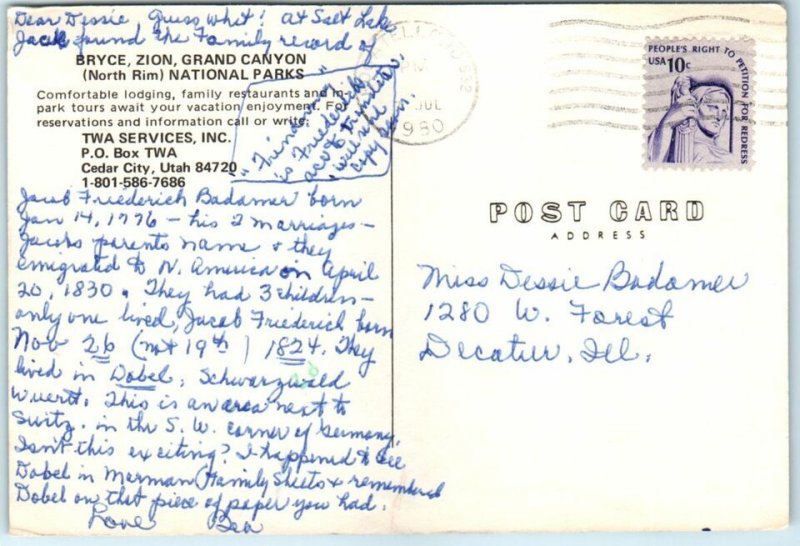 Dear Dessie, Guess what! at Salt Lake
Jack found the Family record of
BRYCE, ZION, GRAND CANYON
(North Rim) NATIONAL PARKS
Comfortable lodging, family restaurants and in-
park tours await your vacation enjoyment. For
reservations and information call or write:
TWA SERVICES, INC.
P.O. Box TWA
Cedar City, Utah 84720
1-801-586-7686
is Friederich
will send
copy soon.
Jacob Friederich Badamer born
Jan 14, 1776 - his 2 marriages -
Jacobs parents name & they
emigrated to N. America on April
20, 1830. They had 3 children -
only one lived, Jacob Friederich born
Nov 26 (not 19th) 1824. They
lived in Dobel, Schwarzwald
Wuertt. This is an area next to
Switz. in the S.W. corner of Germany.
Isn't this exciting? I happened to see
Dobel in Mormon Family Sheets & remembered
Dobel on that piece of paper you had.
Love Bea
PM
JUL
1980
PEOPLE'S RIGHT TO PETITION FOR REDRESS
USA 10c
POST CARD
ADDRESS
Miss Dessie Badamer
1280 W. Forest
Decatur, Ill.